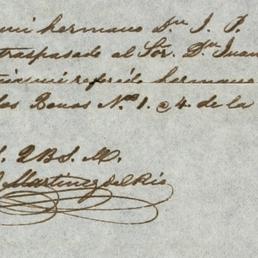 mi hermano Dn. J. P.
traspasado al Sor. Dn. Juan
mi referido hermano
los Bonos Nos. 1. a 4. de la
S. Q B S. M.
J. Martinez del Rio